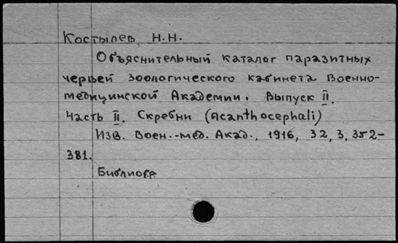 Костылев, Н.Н.
Объяснительный каталог паразитных
червей зоологического кабинета Военно-
медицинской Академии. Выпуск II.
Часть II. Скребни (Acanthocephali)
Изв. Воен.-мед. Акад., 1916, 32, 3, 352-
381.
Библиогр